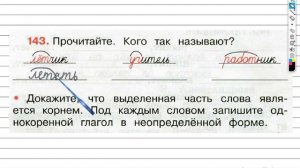 143. Прочитайте. Кого так называют?
лётчик учитель работник
лететь
• Докажите, что выделенная часть слова явля-
ется корнем. Под каждым словом запишите од-
нокоренной глагол в неопределённой форме.